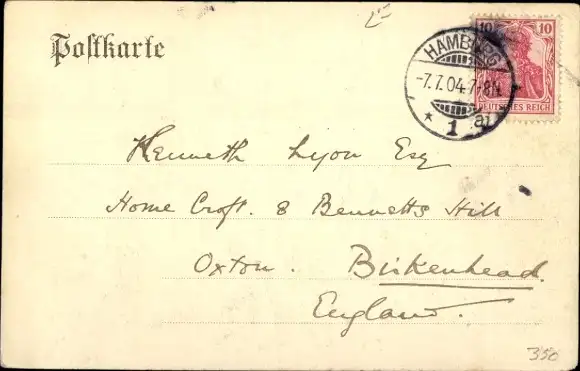 Postkarte
10 10
HAMBURG
-7.7.04.7-8N.
* 1 a.
DEUTSCHES REICH
Kenneth Lyon Esq
Home Croft. 8 Bennetts Hill
Oxton. Birkenhead.
England.
350